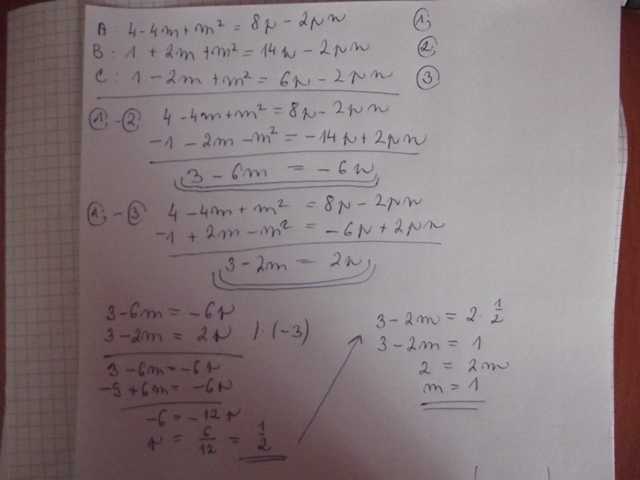 A: 4 - 4m + m² = 8p - 2pn ①
B: 1 + 2m + m² = 14p - 2pn ②
C: 1 - 2m + m² = 6p - 2pn ③
① - ② 4 - 4m + m² = 8p - 2pn
-1 - 2m - m² = -14p + 2pn
3 - 6m = -6p
② - ③ 4 - 4m + m² = 8p - 2pn
-1 + 2m - m² = -6p + 2pn
3 - 2m = 2p
3 - 6m = -6p
3 - 2m = 2p / · (-3)
3 - 6m = -6p
-9 + 6m = -6p
-6 = -12p
p = 6/12 = 1/2
3 - 2m = 2 · 1/2
3 - 2m = 1
2 = 2m
m = 1